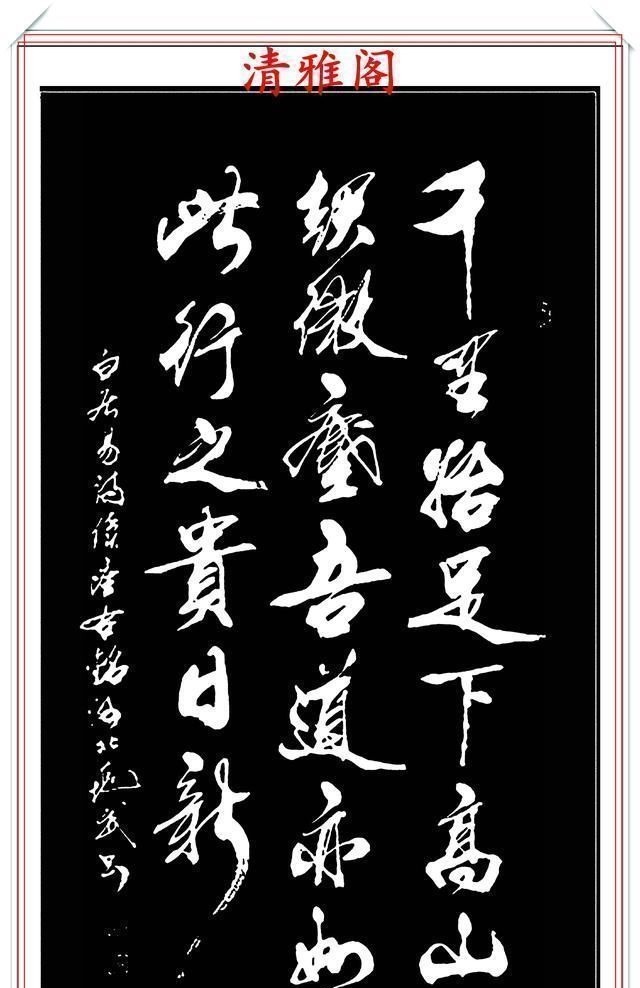 清雅阁
千里始足下高山
起微塵吾道亦如
此行之貴日新
白居易詩續座右銘河北